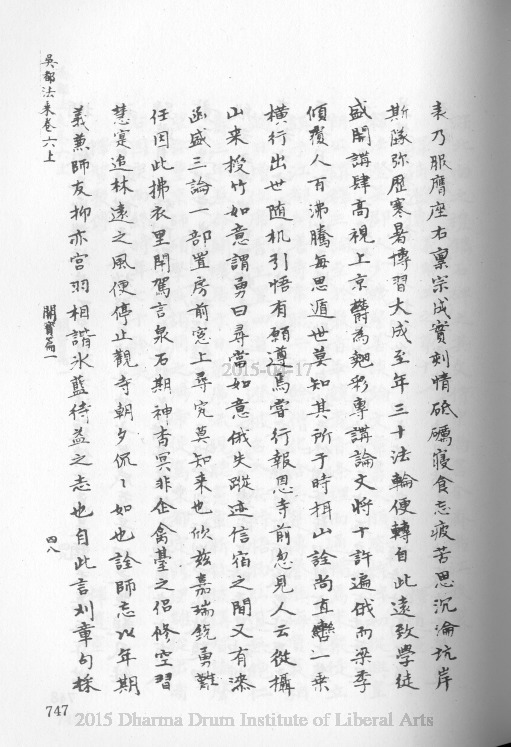 表乃服膺座右稟宗成實刻情砥礪寢食忘疲苦思沉淪坑岸
斯隊弥歷寒暑博習大成至年三十法輪便轉自此遠致學徒
盛開講肆高視上京欝為翹彩專講論文將十許遍俄而梁季
傾覆人百沸騰每思遁世莫知其所于時攝山詮尚直轡一乘
橫行出世随机引悟有願遵焉嘗行報恩寺前忽見人云從攝
山来授竹如意謂勇曰尋當如意俄失蹤迹信宿之間又有漆
函盛三論一部置房前窓上尋究莫知来也欣玆嘉瑞銳勇難
任因此拂衣里閈駕言泉石期神杳冥非企禽臺之侶修空習
慧寔追林遠之風便停止觀寺朝夕侃〻如也詮師忘以年期
義兼師友抑亦宮羽相諧氷藍待益之志也自此言刈章句採
吳都法乘卷六上
開寶篇一
四八
747
2015-04-17
2015 Dharma Drum Institute of Liberal Arts